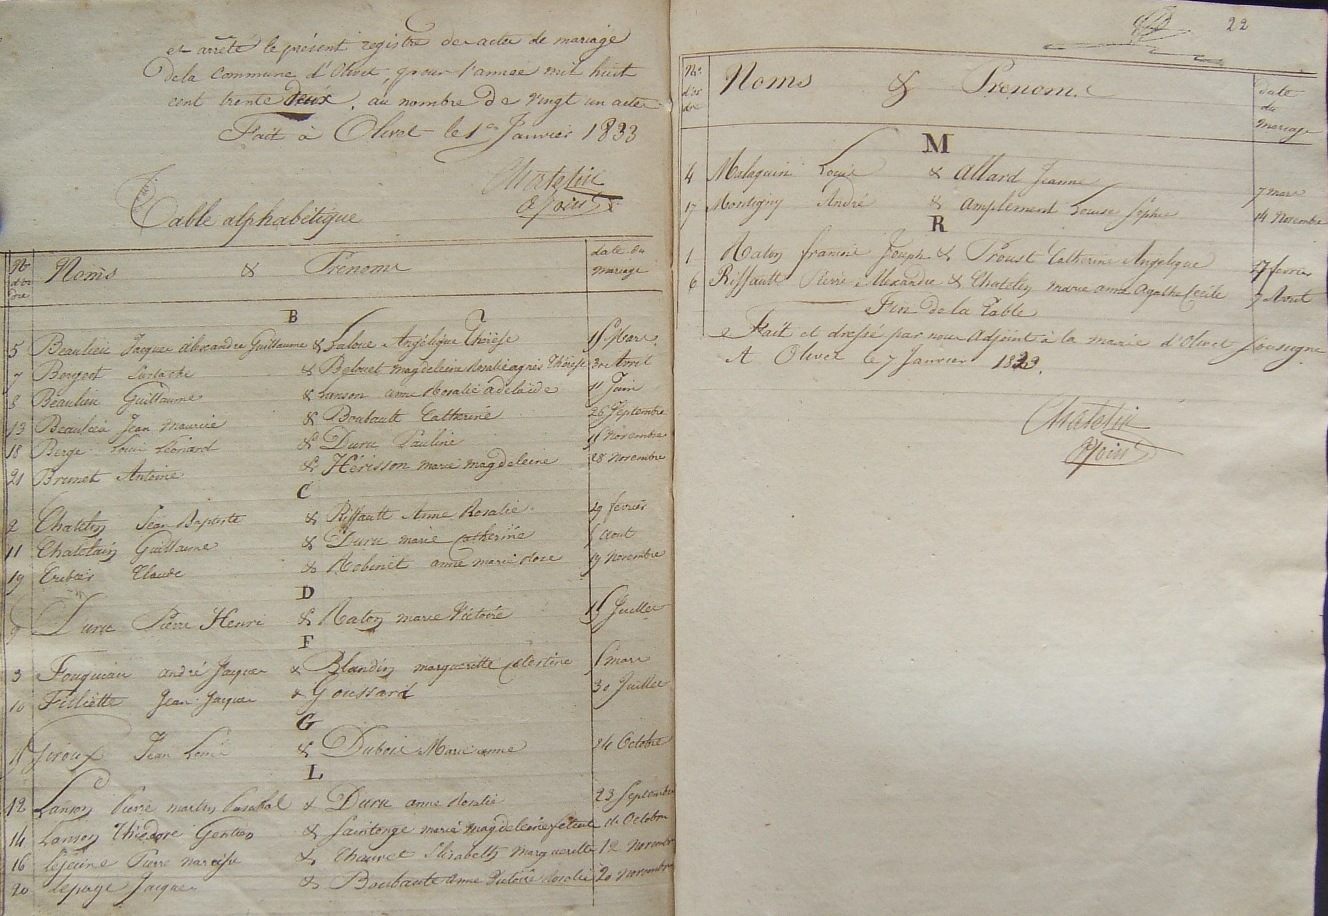 et arrêté le présent registre des actes de mariage
de la Commune d'Olivet, pour l'année mil huit
cent trente deux, au nombre de vingt un actes
Fait à Olivet le 1er Janvier 1833
Chatelin
adjoint
Table alphabétique
Nos d'ordre Noms & Prénoms date du mariage
B
5 Beaulieu Jacques Alexandre Guillaume & Angélique Thérèse Mars
7 & Magdeleine Rosalie agnès Thérèse 30 Avril
8 Beaulieu Guillaume & Lanson anne Rosalie adelaïde 11 Juin
13 Beaulieu Jean Maurice & Boubault Catherine 26 Septembre
18 Berge Louis Léonard & Duru Pauline Novembre
21 Brunet Antoine & Hérisson marie magdeleine 28 Novembre
C
2 Chatelin Jean Baptiste & Riffault Anne Rosalie 29 février
11 Chatelain Guillaume & Duru marie Catherine Aout
19 Claude & Robinet anne marie rose 19 Novembre
D
9 Duru Pierre Henri & Raton marie Victoire Juillet
F
3 André Jacques & Blandin margueritte Celestine mars
10 Filliette Jean Jacques & Goussard 30 Juillet
G
Giroux Jean Louis & Dubois Marie anne 24 Octobre
L
12 Lanson Pierre martin Paschal & Duru anne Rosalie 23 Septembre
14 Lanson Théodore & Saintonge marie magdeleine Octobre
16 Lejeune Pierre narcisse & Chauvet Elisabeth Margueritte 12 Novembre
20 Lepage Jacques & Boubault anne Victoire Rosalie 20 Novembre
22
Nos d'ordre Noms & Prénoms date du mariage
M
4 Malaquin Louis & Allard Jeanne 7 mars
17 Montigny André & Amplement Louise 14 Novembre
R
1 Raton francois Joseph & Proust Catherine Angelique 7 fevrier
6 Riffault Pierre Alexandre & Chatelin marie anne Agathe Cecile 9 Avril
Fin de la Table
Fait et dressé par nous Adjoint à la mairie d'Olivet soussigné
A Olivet le 7 Janvier 1833.
Chatelin
adjoint